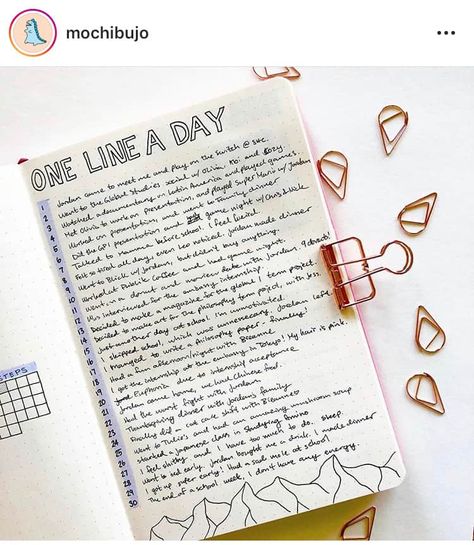 mochibujo
ONE LINE A DAY
1 Jordan came to meet me and play on the switch @ SWC.
2 Went to the Global Studies social w/ Olivia, Kbi and Rozy.
3 Watched a documentary on Latin America and played games.
4 Met Olivia to work on presentation, and played Super Mario w/ Jordan
5 Worked on presentations, and went to family dinner
6 Did the GPI presentation and game night w/ Chris & Nick
7 Talked to Mamma before school. I feel weird.
8 Felt so tired all day, even Leo noticed. Jordan made dinner
9 Went to Blick w/ Jordan but didn't buy anything.
10 Worked at Publik Coffee and had game night.
11 Went on a donut and movies date with Jordan 9 dates!
12 Was interviewed for the embassy internship.
13 Decided to make a magazine for the global term project
14 Decided to make art for the philosophy term project, with Jess.
15 Just another day at school. I'm unmotivated
16 I skipped school, which was unnecessary. Jocelan left
17 Managed to write a philosophy paper - finally!
18 Had a fun afternoon/night with Breanne
19 I got the internship at the embassy in Tokyo! My hair is pink.
20 Euphoria due to internship acceptance
21 Jordan came home, we had Chinese food.
22 Had the worst fight with Jordan.
23 Thanksgiving dinner with Jordan's family
24 Finally did a cat cafe visit with Brienne
25 Went to Dulce's and had an amazing mushroom soup
26 Started a Japanese class in studying Domino
27 I feel shitty and I have too much to do. Sleep.
28 Went to bed early. Jordan bought me a drink, I made dinner
29 I got up super early. Had a sad mole at school
30 The end of a school week, I don't have any energy.
STEPS